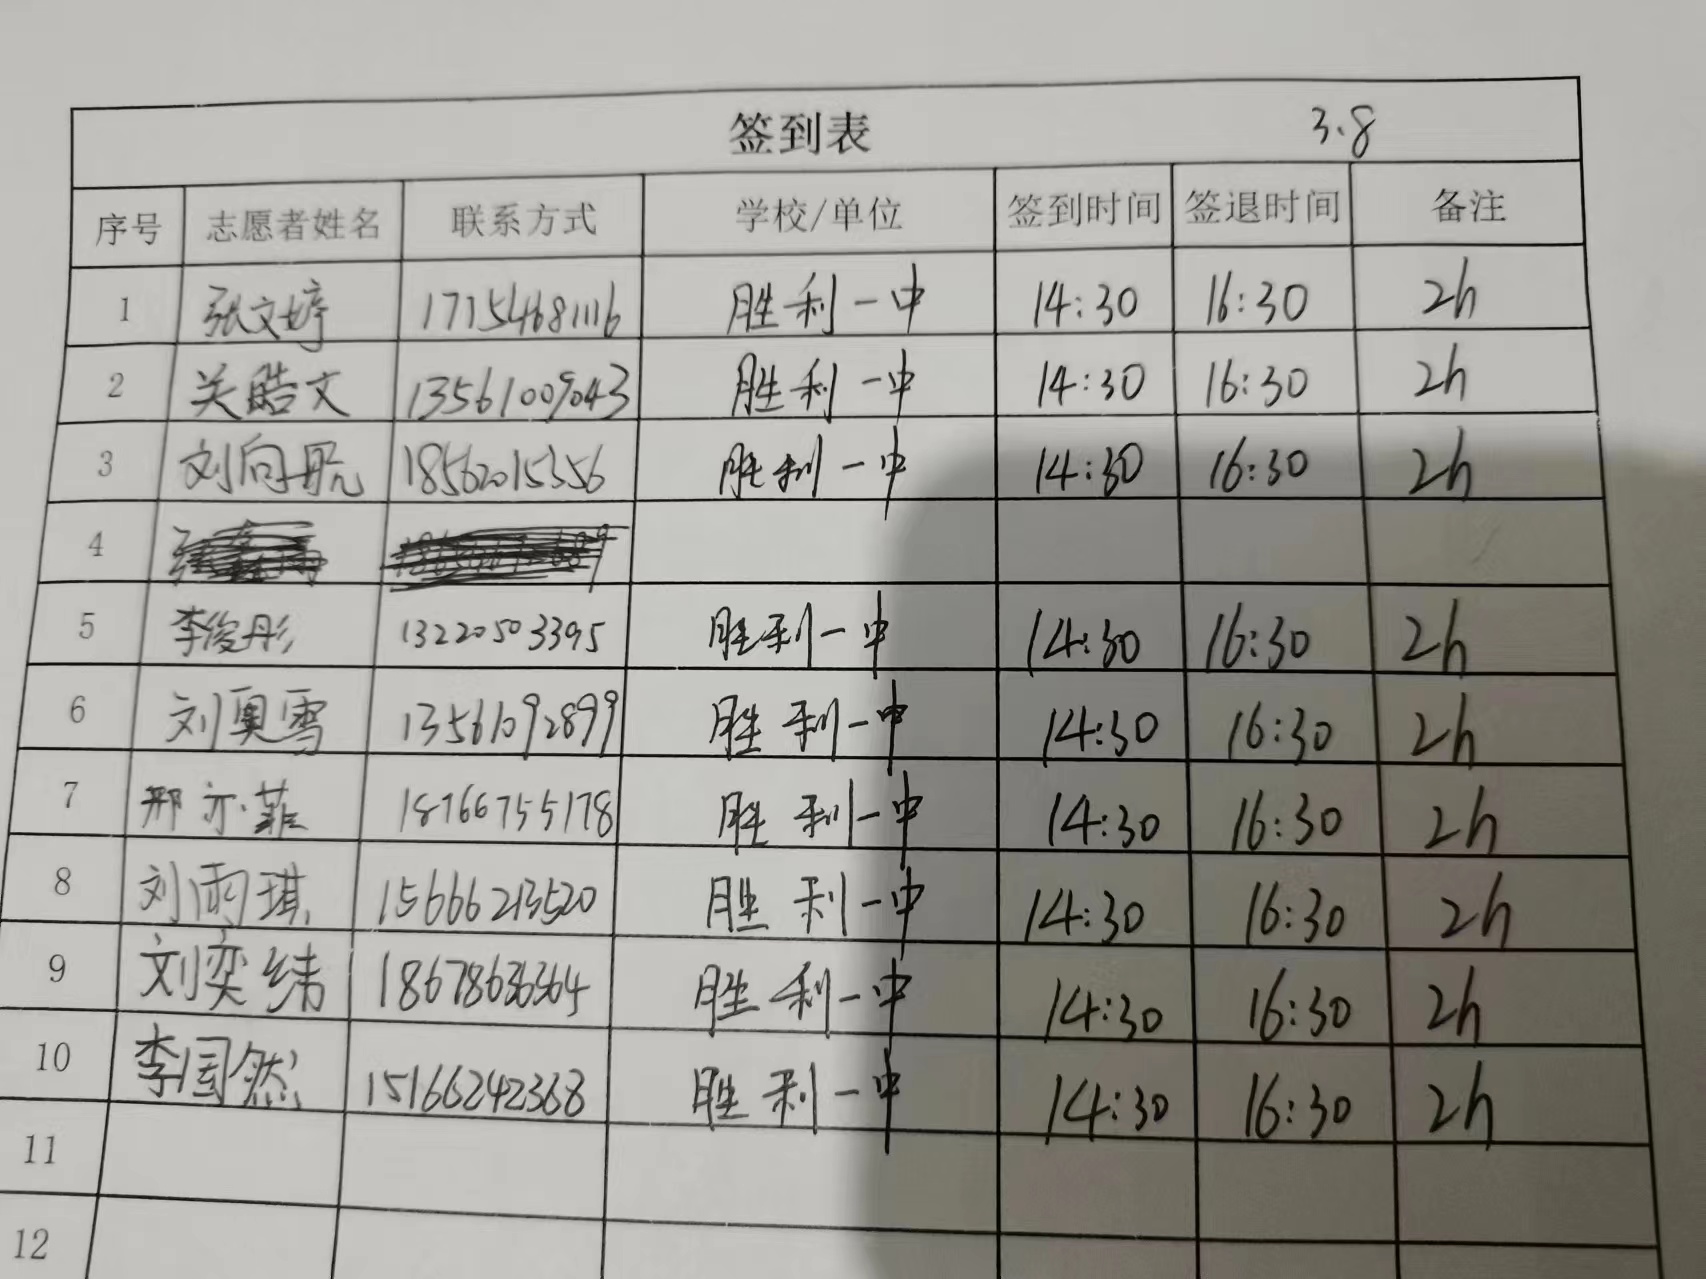 签到表 3.8
序号 志愿者姓名 联系方式 学校/单位 签到时间 签退时间 备注
1 张文婷 17154681116 胜利一中 14:30 16:30 2h
2 关皓文 13561009043 胜利一中 14:30 16:30 2h
3 刘向航 18562015356 胜利一中 14:30 16:30 2h
4
5 李俊彤 13220503395 胜利一中 14:30 16:30 2h
6 刘奥雪 13561092899 胜利一中 14:30 16:30 2h
7 邢亦菲 18766755178 胜利一中 14:30 16:30 2h
8 刘雨琪 15666213520 胜利一中 14:30 16:30 2h
9 刘奕纬 18678636364 胜利一中 14:30 16:30 2h
10 李国然 15166242368 胜利一中 14:30 16:30 2h
11
12